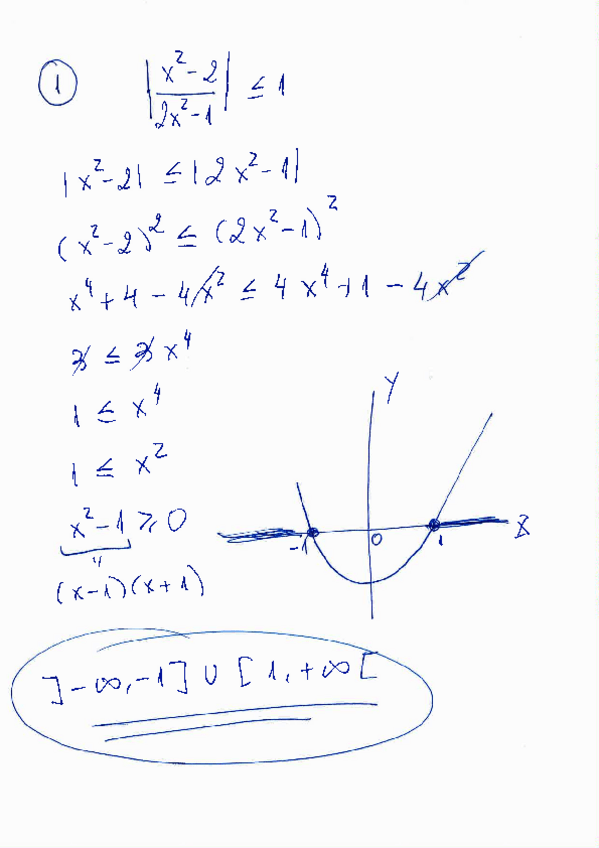 1
|x²-2 / 2x²-1| ≤ 1
|x²-2| ≤ |2x²-1|
(x²-2)² ≤ (2x²-1)²
x⁴+4-4x² ≤ 4x⁴+1-4x²
3 ≤ 3x⁴
1 ≤ x⁴
1 ≤ x²
x²-1 ≥ 0
(x-1)(x+1)
Y
-1 0 1 X
]-∞,-1] ∪ [1,+∞[